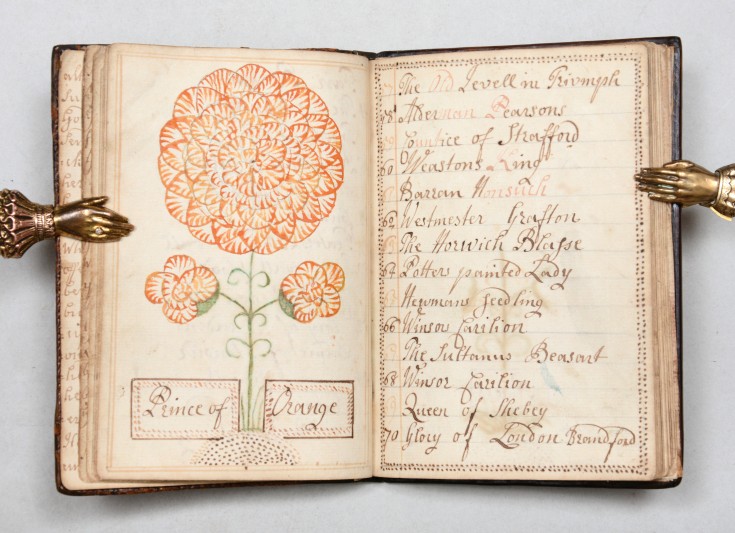 Prince of Orange
The Old Levell in Trivmph
58 Alderman Pearsons
Countice of Strafford
60 Weastons King
Barran Horsvich
62 Westmester Grafton
The Horwich Blasse
64 Potters painted Lady
Hewmans Seedling
66 Winsor Carilion
The Sultanus Beasart
68 Winsor Carilion
Queen of Shebey
70 Glory of London Brandford